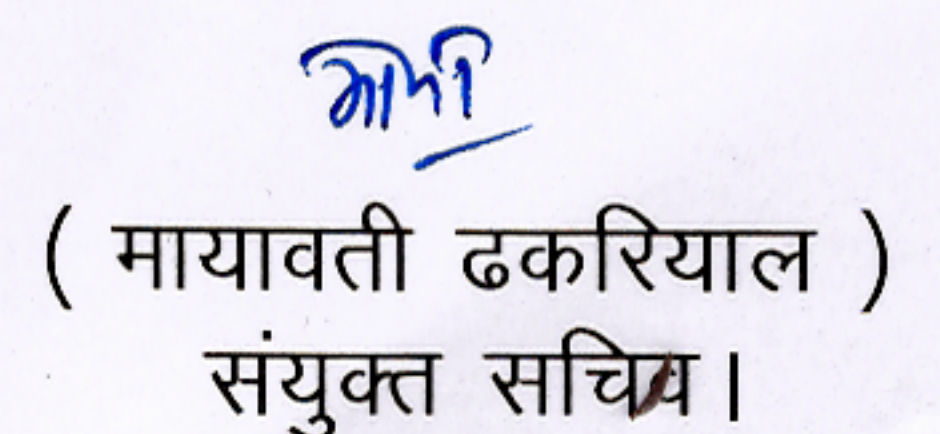 ( मायावती ढकरियाल )
संयुक्त सचिव।